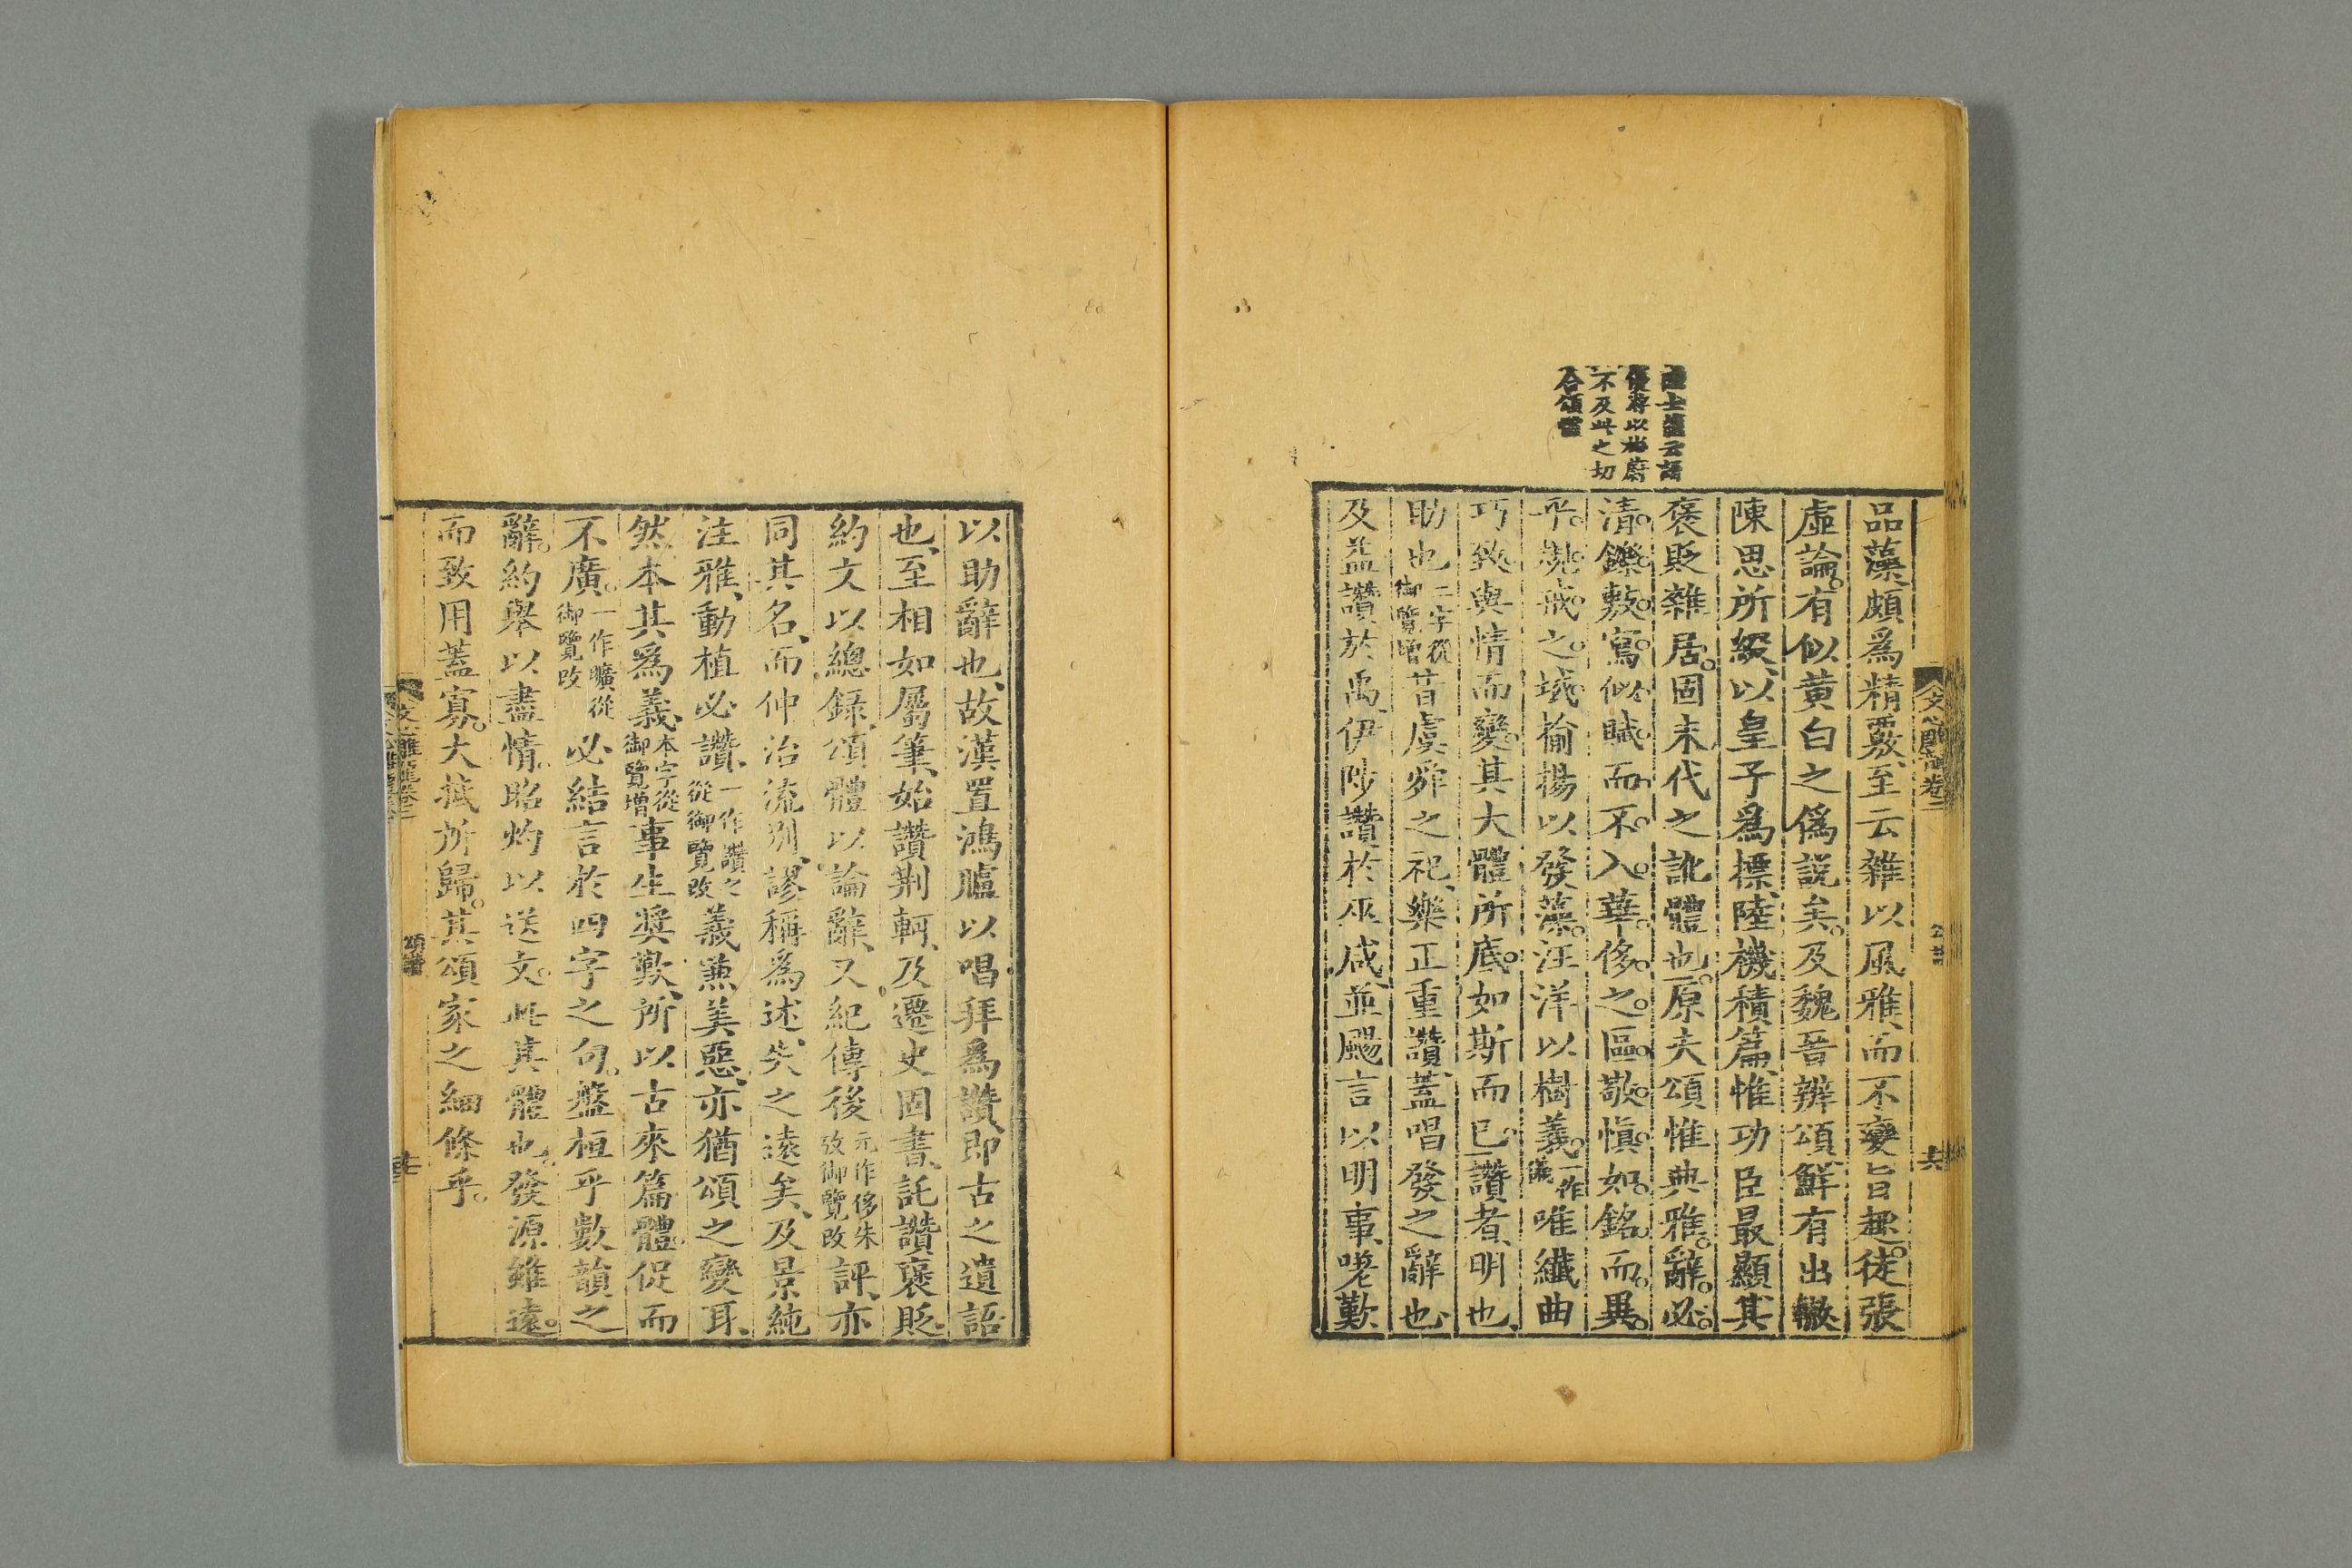 不及此之切
合頌
品藻、頗爲精覈、至云雜以風雅、而不變旨趣。徒張
虛論。有似黄白之僞説矣。及魏晉辨頌、鮮有出轍
陳思所綴、以皇子爲標、陸機積篇、惟功臣最顯、其
褒貶雜居。固末代之訛體也。原夫頌惟典雅。辭必
清鑠。敷寫似賦。而不入華侈之區。敬愼如銘。而異
乎規戒之域。揄揚以發藻。汪洋以樹義。一作儀唯纖曲
巧致、與情而變、其大體所底。如斯而已。讚者、明也、
助也二字從御覽增昔虞舜之祀、樂正重讚、蓋唱發之辭也、
及益讚於禹、伊陟讚於巫咸、並颺言以明事、嗟歎
以助辭也、故漢置鴻臚、以唱拜爲讚、即古之遺語
也、至相如屬筆、始讚荆軻、及遷史固書、託讚褒貶、
約文以總錄、頌體以論辭、又紀傳後元作侈朱攷御覽改評、亦
同其名、而仲治流别、謬稱爲述、失之遠矣、及景純
注雅、動植必讚、一作讚之從御覽改義兼美惡、亦猶頌之變耳、
然本其爲義、本字從御覽增事生奬歎、所以古來篇體促而
不廣。一作曠從御覽改必結言於四字之句。盤桓乎數韻之
辭。約舉以盡情、昭灼以送文。此其體也。發源雖遠。
而致用蓋寡。大抵所歸。其頌家之細條乎。
文心雕龍卷二
頌讚